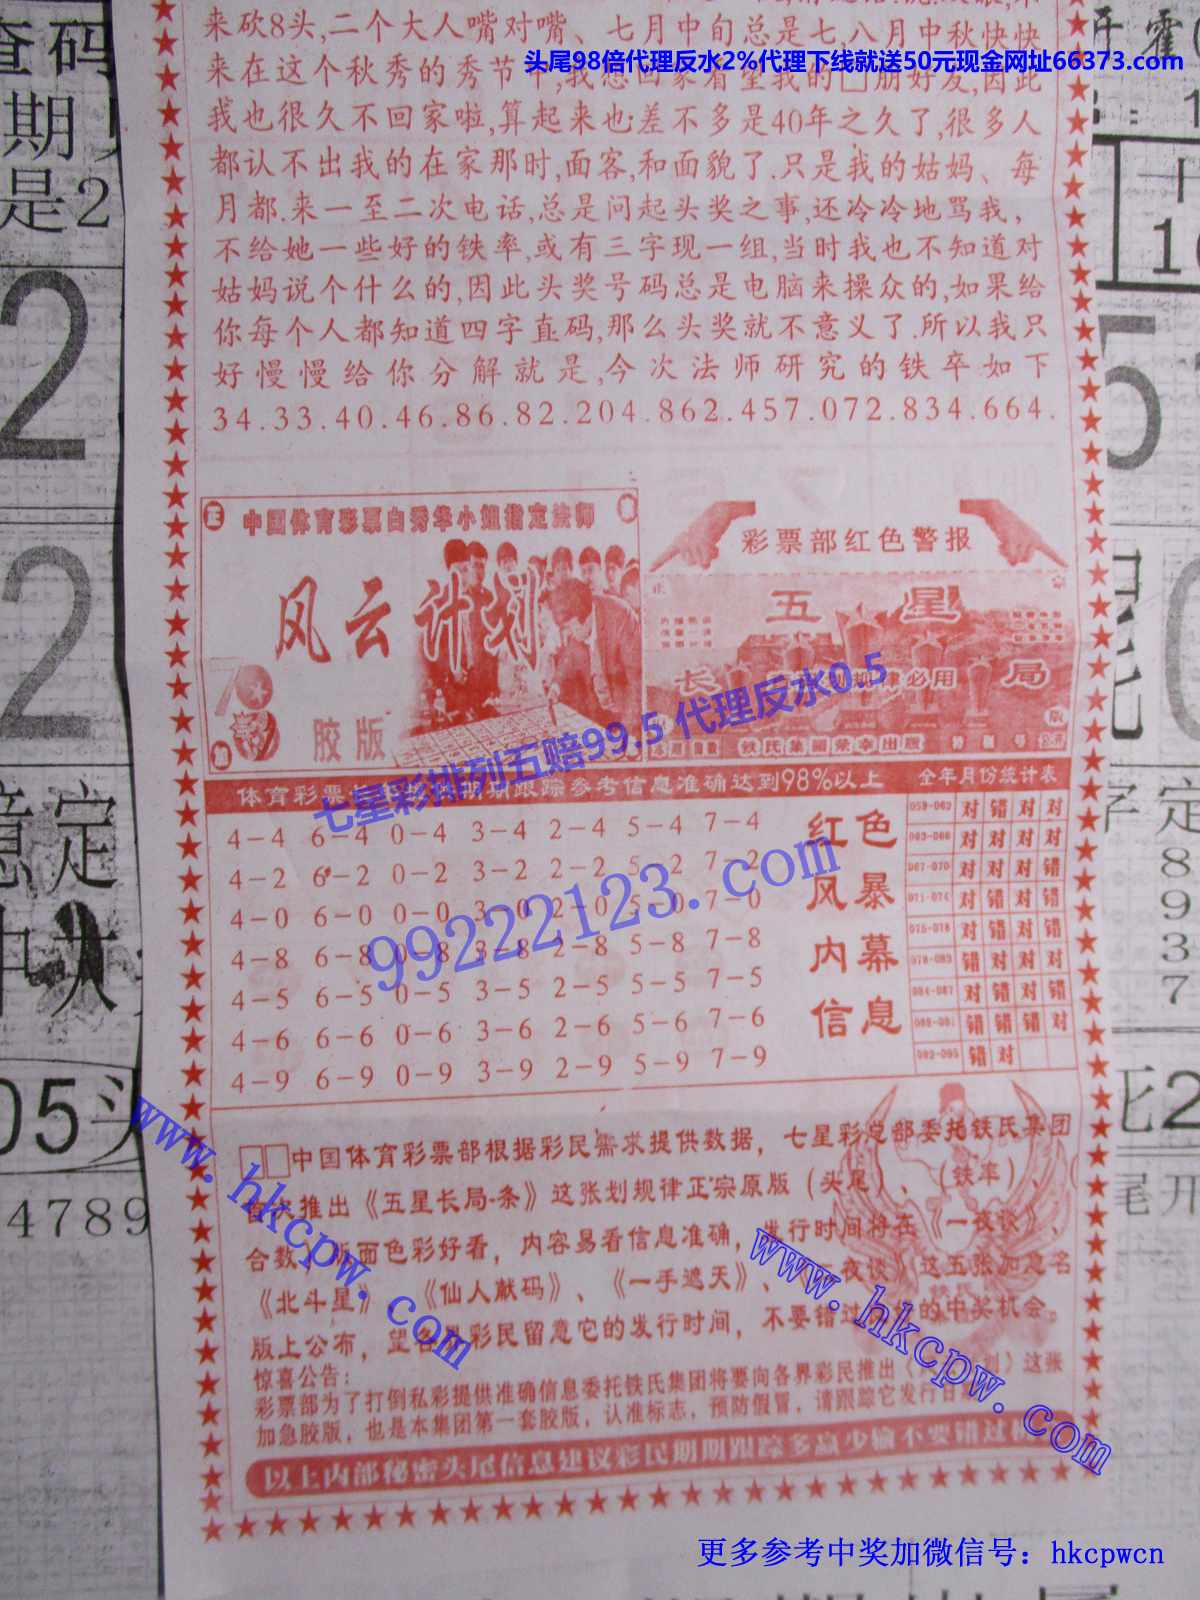 来砍8头,二个大人嘴对嘴、七月中旬总是七,八月中秋快快
头尾98倍代理反水2%代理下线就送50元现金网址66373.com
来在这个秋秀的秀节中,我想回家看望我的□朋好友,因此
我也很久不回家啦,算起来也差不多是40年之久了,很多人
都认不出我的在家那时,面客,和面貌了.只是我的姑妈、每
月都.来一至二次电话,总是问起头奖之事,还冷冷地骂我,
不给她一些好的铁率,或有三字现一组,当时我也不知道对
姑妈说个什么的,因此头奖号码总是电脑来操众的,如果给
你每个人都知道四字直码,那么头奖就不意义了.所以我只
好慢慢给你分解就是,今次法师研究的铁卒如下
34.33.40.46.86.82.204.862.457.072.834.664.
正 中国体育彩票白秀华小姐指定法师
风云计划
胶版
彩票部红色警报
五星
长 划规律必用 局
铁氏集團荣幸出版
七星彩排列五赔99.5 代理反水0.5
体育彩票 期跟踪参考信息准确达到98%以上 全年月份统计表
4-4 6-4 0-4 3-4 2-4 5-4 7-4
4-2 6-2 0-2 3-2 2-2 5-2 7-2
4-0 6-0 0-0 3-0 2-0 5-0 7-0
4-8 6-8 0-8 3-8 2-8 5-8 7-8
4-5 6-5 0-5 3-5 2-5 5-5 7-5
4-6 6-6 0-6 3-6 2-6 5-6 7-6
4-9 6-9 0-9 3-9 2-9 5-9 7-9
99222123.com
红色
风暴
内幕
信息
059-062 对 错 对 对
063-066 对 对 对 对
067-070 对 对 对 错
071-074 对 错 对 错
075-078 对 错 对 错
079-083 错 对 对 对
084-087 对 错 对 错
088-091 错 错 错 对
092-095 错 对
□□中国体育彩票部根据彩民需求提供数据，七星彩总部委托铁氏集团
推出《五星长局-条》这张划规律正宗原版（头尾）、（铁率）、（
合数 版面色彩好看，内容易看信息准确，发行时间将在《一夜谈》、
《北斗星》 《仙人献码》、《一手遮天》、《一夜谈》这五张加急名
版上公布，望各界彩民留意它的发行时间，不要错过 的中奖机会。
惊喜公告：
彩票部为了打倒私彩提供准确信息委托铁氏集团将要向各界彩民推出（ 划）这张
加急胶版，也是本集团第一套胶版，认准标志，预防假冒，请跟踪它发行日
以上内部秘密头尾信息建议彩民期期跟踪多赢少输不要错过
www.hkcpw.com
www.hkcpw.com
更多参考中奖加微信号：hkcpwcn
查码
期
是2
2
2
意定
05头
4789
十
5
字定
8
9
3
7
尾开